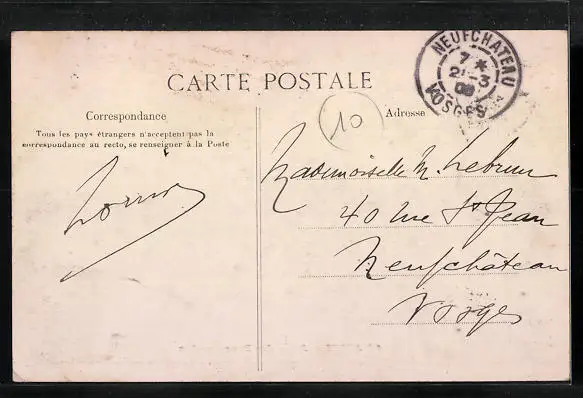 CARTE POSTALE
NEUFCHATEAU
7 *
21-3
VOSGES
10
Correspondance
Adresse
Tous les pays étrangers n'acceptent pas la
correspondance au recto, se renseigner à la Poste
Mademoiselle M. Lebrun
40 rue St Jean
Neufchâteau
Vosges